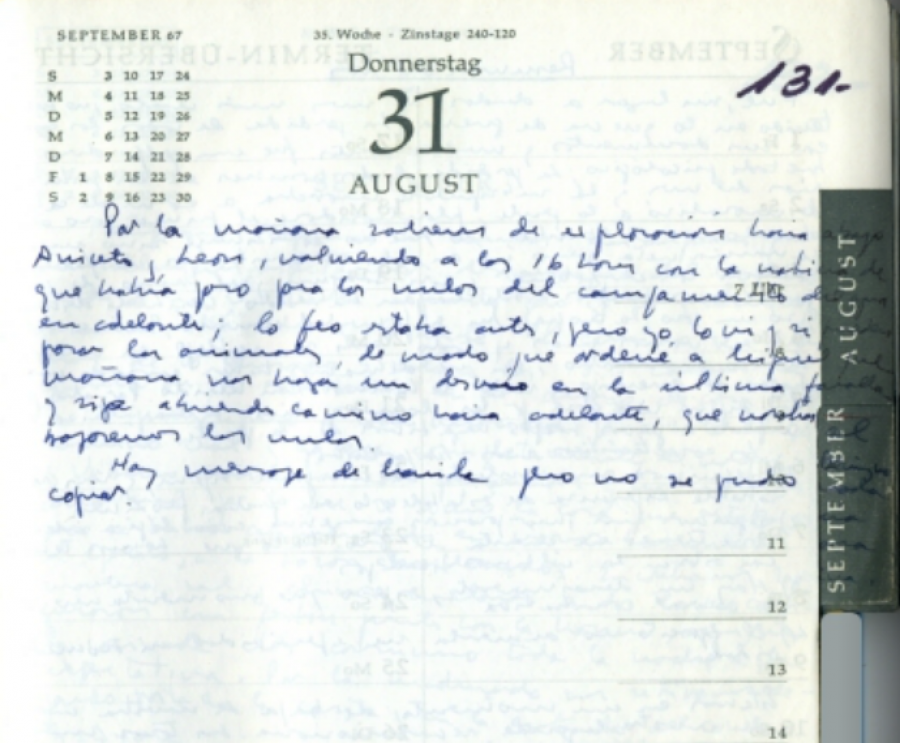 SEPTEMBER 67
35. Woche - Zinstage 240-120
Donnerstag
31
AUGUST
131.-
S 3 10 17 24
M 4 11 18 25
D 5 12 19 26
M 6 13 20 27
D 7 14 21 28
F 1 8 15 22 29
S 2 9 16 23 30
Por la mañana salieron de exploración hacia abajo
Aniceto y León, volviendo a las 16 horas con la noticia de
que había paso para las mulas del campamento
en adelante; lo feo estaba antes, pero yo lo vi y si pueden
pasar los animales, de modo que ordené a Miguel que
mañana nos haga un desvío en la última faralla
y siga abriendo camino hacia adelante, que nosotros
bajaremos las mulas.
Hay mensaje de Manila pero no se pudo
copiar.
11
12
13
14
SEPTEMBER AUGUST